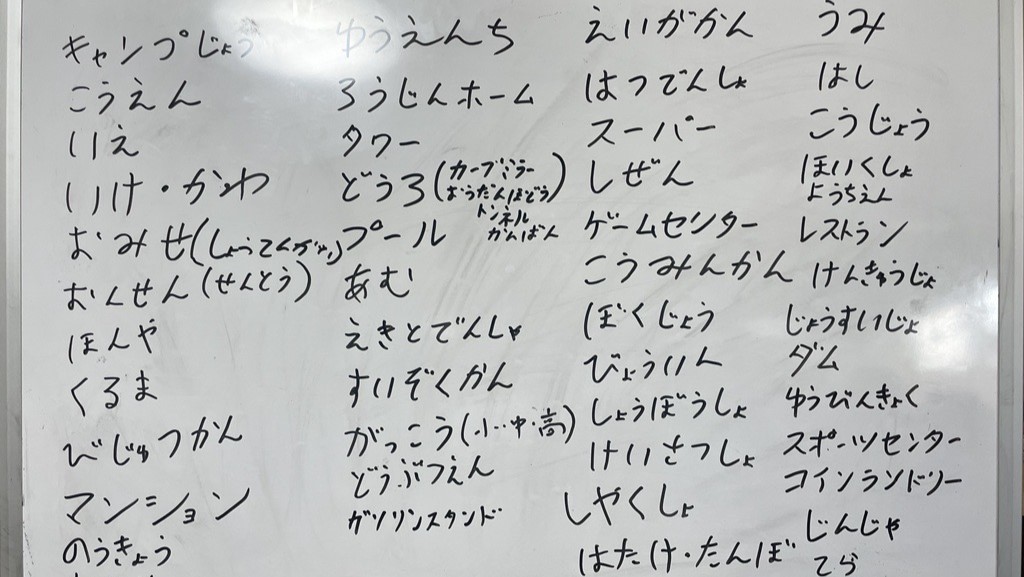 キャンプじょう
こうえん
いえ
いけ・かわ
おみせ(しょうてんがい)
おんせん(せんとう)
ほんや
くるま
びじゅつかん
マンション
のうきょう
ゆうえんち
ろうじんホーム
タワー
どうろ(カーブミラー
おうだんほどう)
トンネル
かんばん
プール
あむ
えきとでんしゃ
すいぞくかん
がっこう(小・中・高)
どうぶつえん
ガソリンスタンド
えいがかん
はつでんしょ
スーパー
しぜん
ゲームセンター
こうみんかん
ぼくじょう
びょういん
しょうぼうしょ
けいさつしょ
しやくしょ
はたけ・たんぼ
うみ
はし
こうじょう
ほいくしょ
ようちえん
レストラン
けんきゅうじょ
じょうすいじょ
ダム
ゆうびんきょく
スポーツセンター
コインランドリー
じんじゃ
てら